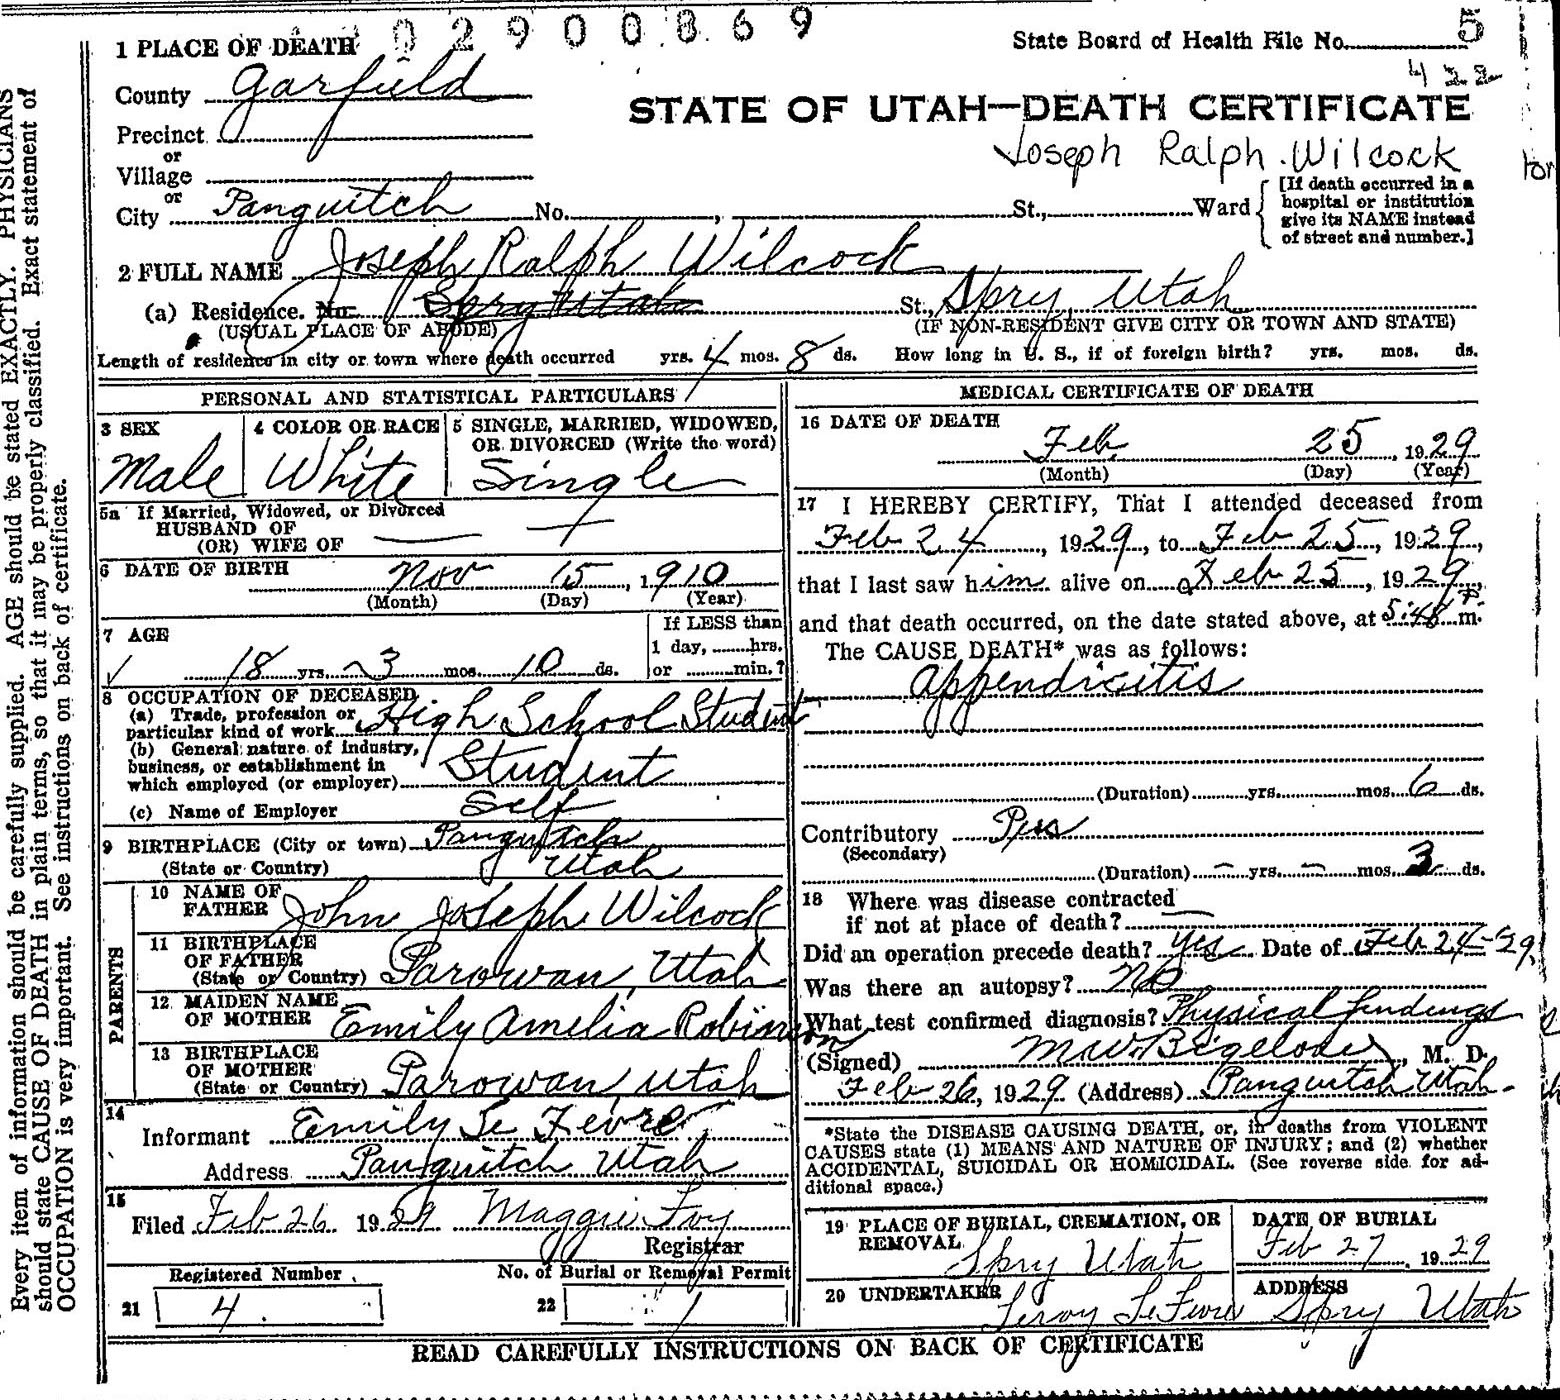 02900869
1 PLACE OF DEATH
State Board of Health File No. 5
422
County Garfield
STATE OF UTAH—DEATH CERTIFICATE
Precinct
Joseph Ralph Wilcock
or
Village
or
City Panguitch No. , St., Ward
[If death occurred in a hospital or institution give its NAME instead of street and number.]
2 FULL NAME Joseph Ralph Wilcock
(a) Residence. No. Spry Utah St., Spry, Utah
(USUAL PLACE OF ABODE) (IF NON-RESIDENT GIVE CITY OR TOWN AND STATE)
Length of residence in city or town where death occurred yrs. 4 mos. 8 ds. How long in U. S., if of foreign birth? yrs. mos. ds.
PERSONAL AND STATISTICAL PARTICULARS
3 SEX
Male
4 COLOR OR RACE
White
5 SINGLE, MARRIED, WIDOWED,
OR DIVORCED (Write the word)
Single
5a If Married, Widowed, or Divorced
HUSBAND OF
(OR) WIFE OF
6 DATE OF BIRTH Nov 15, 1910
(Month) (Day) (Year)
7 AGE
18 yrs. 3 mos. 10 ds.
If LESS than
1 day, ........hrs.
or .........min.?
8 OCCUPATION OF DECEASED
(a) Trade, profession or
particular kind of work High School Student
(b) General nature of industry,
business, or establishment in
which employed (or employer) Student
(c) Name of Employer Self
9 BIRTHPLACE (City or town) Panguitch
(State or Country) Utah
PARENTS
10 NAME OF
FATHER John Joseph Wilcock
11 BIRTHPLACE
OF FATHER
(State or Country) Parowan, Utah
12 MAIDEN NAME
OF MOTHER Emily Amelia Robinson
13 BIRTHPLACE
OF MOTHER
(State or Country) Parowan, Utah
14
Informant Emily Le Fevre
Address Panguitch Utah
15
Filed Feb 26 1929 Maggie Foy
Registrar
Registered Number
21 4
No. of Burial or Removal Permit
22 1
MEDICAL CERTIFICATE OF DEATH
16 DATE OF DEATH
Feb. 25, 1929
(Month) (Day) (Year)
17 I HEREBY CERTIFY, That I attended deceased from
Feb 24, 1929, to Feb 25, 1929,
that I last saw him alive on Feb 25, 1929,
and that death occurred, on the date stated above, at 5:48 P. m.
The CAUSE DEATH* was as follows:
Appendicitis
(Duration) yrs. mos. 6 ds.
Contributory Pus
(Secondary)
(Duration) - yrs. - mos. 3 ds.
18 Where was disease contracted
if not at place of death?
Did an operation precede death? Yes Date of Feb 24-29.
Was there an autopsy? No
What test confirmed diagnosis? Physical findings
(Signed) M W Bigelow, M. D.
Feb 26, 1929 (Address) Panguitch Utah.
*State the DISEASE CAUSING DEATH, or, in deaths from VIOLENT
CAUSES state (1) MEANS AND NATURE OF INJURY; and (2) whether
ACCIDENTAL, SUICIDAL OR HOMICIDAL. (See reverse side for ad-
ditional space.)
19 PLACE OF BURIAL, CREMATION, OR
REMOVAL Spry Utah
DATE OF BURIAL
Feb 27, 1929
20 UNDERTAKER
Leroy LeFevre
ADDRESS
Spry Utah
READ CAREFULLY INSTRUCTIONS ON BACK OF CERTIFICATE
Every item of information should be carefully supplied. AGE should be stated EXACTLY. PHYSICIANS
should state CAUSE OF DEATH in plain terms, so that it may be properly classified. Exact statement of
OCCUPATION is very important. See instructions on back of certificate.